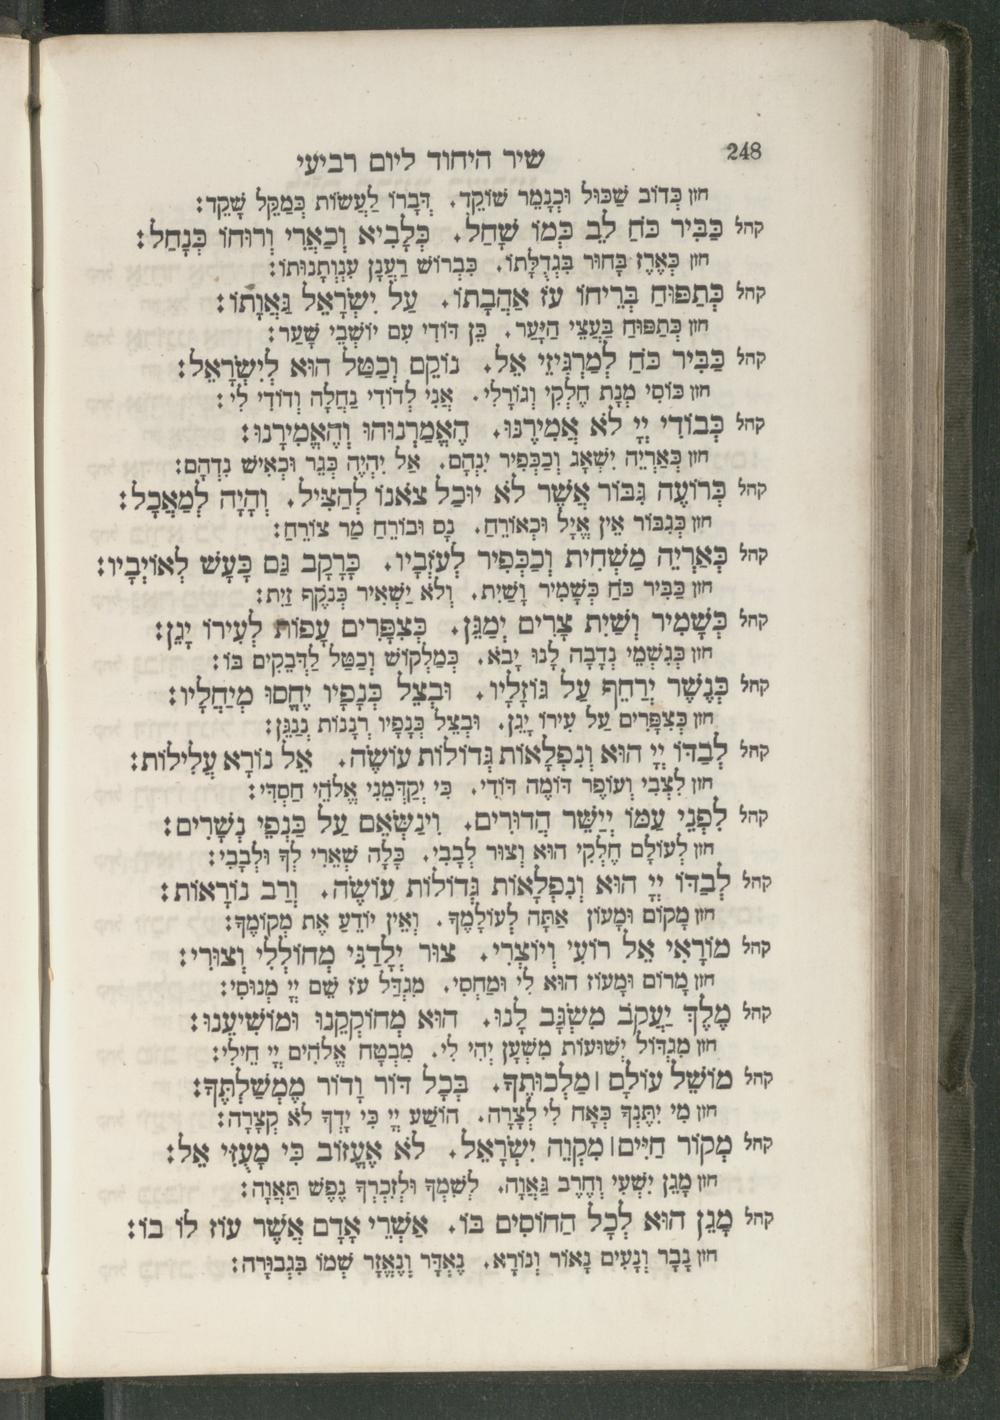 248
שיר היחוד ליום רביעי
חזן כְּדוֹב שַׁכּוּל וּכְנָמֵר שׁוֹקֵד. דְּבָרוֹ לַעֲשׂוֹת כְּמַקֵּל שָׁקֵד:
קהל כַּבִּיר כֹּחַ לֵב כְּמוֹ שָׁחַל. כְּלָבִיא וְכַאֲרִי וְרוּחוֹ כְּנָחַל:
חזן כְּאֶרֶז בָּחוּר בִּגְדֻלָּתוֹ. כִּבְרוֹשׁ רַעֲנָן עַנְוְתָנוּתוֹ:
קהל כְּתַפּוּחַ בְּרֵיחוֹ עֹז אַהֲבָתוֹ. עַל יִשְׂרָאֵל גַּאֲוָתוֹ:
חזן כְּתַפּוּחַ בַּעֲצֵי הַיָּעַר. כֵּן דּוֹדִי עִם יוֹשְׁבֵי שָׁעַר:
קהל כַּבִּיר כֹּחַ לְמַרְגִּיזֵי אֵל. נוֹקֵם וְכַטַּל הוּא לְיִשְׂרָאֵל:
חזן כּוֹסִי מְנָת חֶלְקִי וְגוֹרָלִי. אֲנִי לְדוֹדִי נַחֲלָה וְדוֹדִי לִי:
קהל כְּבוֹדִי יְיָ לֹא אֲמִירֶנּוּ. הֶאֱמַרְנוּהוּ וְהֶאֱמִירָנוּ:
חזן כְּאַרְיֵה יִשְׁאָג וְכַכְּפִיר יִנְהָם. אַל יִהְיֶה כְּגֵר וּכְאִישׁ נִדְהָם:
קהל כְּרוֹעֶה גִּבּוֹר אֲשֶׁר לֹא יוּכַל צֹאנוֹ לְהַצִּיל. וְהָיָה לְמַאֲכָל:
חזן כְּגִבּוֹר אֵין אֱיָל וּכְאוֹרֵחַ. נָס וּבוֹרֵחַ מַר צוֹרֵחַ:
קהל כְּאַרְיֵה מַשְׁחִית וְכַכְּפִיר לְעוֹזְבָיו. כָּרָקָב גַּם כָּעָשׁ לְאוֹיְבָיו:
חזן כַּבִּיר כֹּחַ כְּשָׁמִיר וָשַׁיִת. וְלֹא יַשְׁאִיר כְּנֹקֶף זַיִת:
קהל כְּשָׁמִיר וְשַׁיִת צָרִים יְמַגֵּן. כְּצִפֳּרִים עָפוֹת לְעִירוֹ יָגֵן:
חזן כְּגִשְׁמֵי נְדָבָה לָנוּ יָבֹא. כְּמַלְקוֹשׁ וְכַטַּל לַדְּבֵקִים בּוֹ:
קהל כְּנֶשֶׁר יְרַחֵף עַל גּוֹזָלָיו. וּבְצֵל כְּנָפָיו יֶחֱסוּ מְיַחֲלָיו:
חזן כְּצִפֳּרִים עַל עִירוֹ יָגֵן. וּבְצֵל כְּנָפָיו רְנָנוֹת נְנַגֵּן:
קהל לְבַדּוֹ יְיָ הוּא וְנִפְלָאוֹת גְּדוֹלוֹת עוֹשֶׂה. אֵל נוֹרָא עֲלִילוֹת:
חזן לִצְבִי וְעוֹפֶר דּוֹמֶה דּוֹדִי. כִּי יְקַדְּמֵנִי אֱלֹהֵי חַסְדִּי:
קהל לִפְנֵי עַמּוֹ יְיַשֵּׁר הֲדוּרִים. וִינַשְּׂאֵם עַל כַּנְפֵי נְשָׁרִים:
חזן לְעוֹלָם חֶלְקִי הוּא וְצוּר לְבָבִי. כָּלָה שְׁאֵרִי לְךָ וּלְבָבִי:
קהל לְבַדּוֹ יְיָ הוּא וְנִפְלָאוֹת גְּדוֹלוֹת עוֹשֶׂה. וְרַב נוֹרָאוֹת:
חזן מָקוֹם וּמָעוֹן אַתָּה לְעוֹלָמֶךָ. וְאֵין יוֹדֵעַ אֶת מְקוֹמֶךָ:
קהל מוֹרָאִי אֵל רוֹעִי וְיוֹצְרִי. צוּר יְלָדַנִי מְחוֹלְלִי וְצוּרִי:
חזן מָרוֹם וּמָעוֹז הוּא לִי וּמַחְסִי. מִגְדַּל עֹז שֵׁם יְיָ מְנוּסִי:
קהל מֶלֶךְ יַעֲקֹב מִשְׂגָּב לָנוּ. הוּא מְחוֹקְקֵנוּ וּמוֹשִׁיעֵנוּ:
חזן מִגְדּוֹל יְשׁוּעוֹת מִשְׁעָן יְהִי לִי. מִבְטָח אֱלֹהִים יְיָ חֵילִי:
קהל מוֹשֵׁל עוֹלָם ׀ מַלְכוּתֶךָ. בְּכָל דּוֹר וָדוֹר מֶמְשַׁלְתֶּךָ:
חזן מִי יִתֶּנְךָ כְּאָח לִי לְצָרָה. הוֹשַׁע יְיָ כִּי יָדְךָ לֹא קְצָרָה:
קהל מְקוֹר חַיִּים ׀ מִקְוֵה יִשְׂרָאֵל. לֹא אֶעֱזוֹב כִּי מָעֻזִּי אֵל:
חזן מָגֵן יִשְׁעִי וְחֶרֶב גַּאֲוָה. לְשִׁמְךָ וּלְזִכְרְךָ נֶפֶשׁ תַּאֲוָה:
קהל מָגֵן הוּא לְכָל הַחוֹסִים בּוֹ. אַשְׁרֵי אָדָם אֲשֶׁר עוֹז לוֹ בוֹ:
חזן נָבָר וְנָעִים נָאוֹר וְנוֹרָא. נֶאְדָּר וְנֶאֱזָר שְׁמוֹ בִּגְבוּרָה: